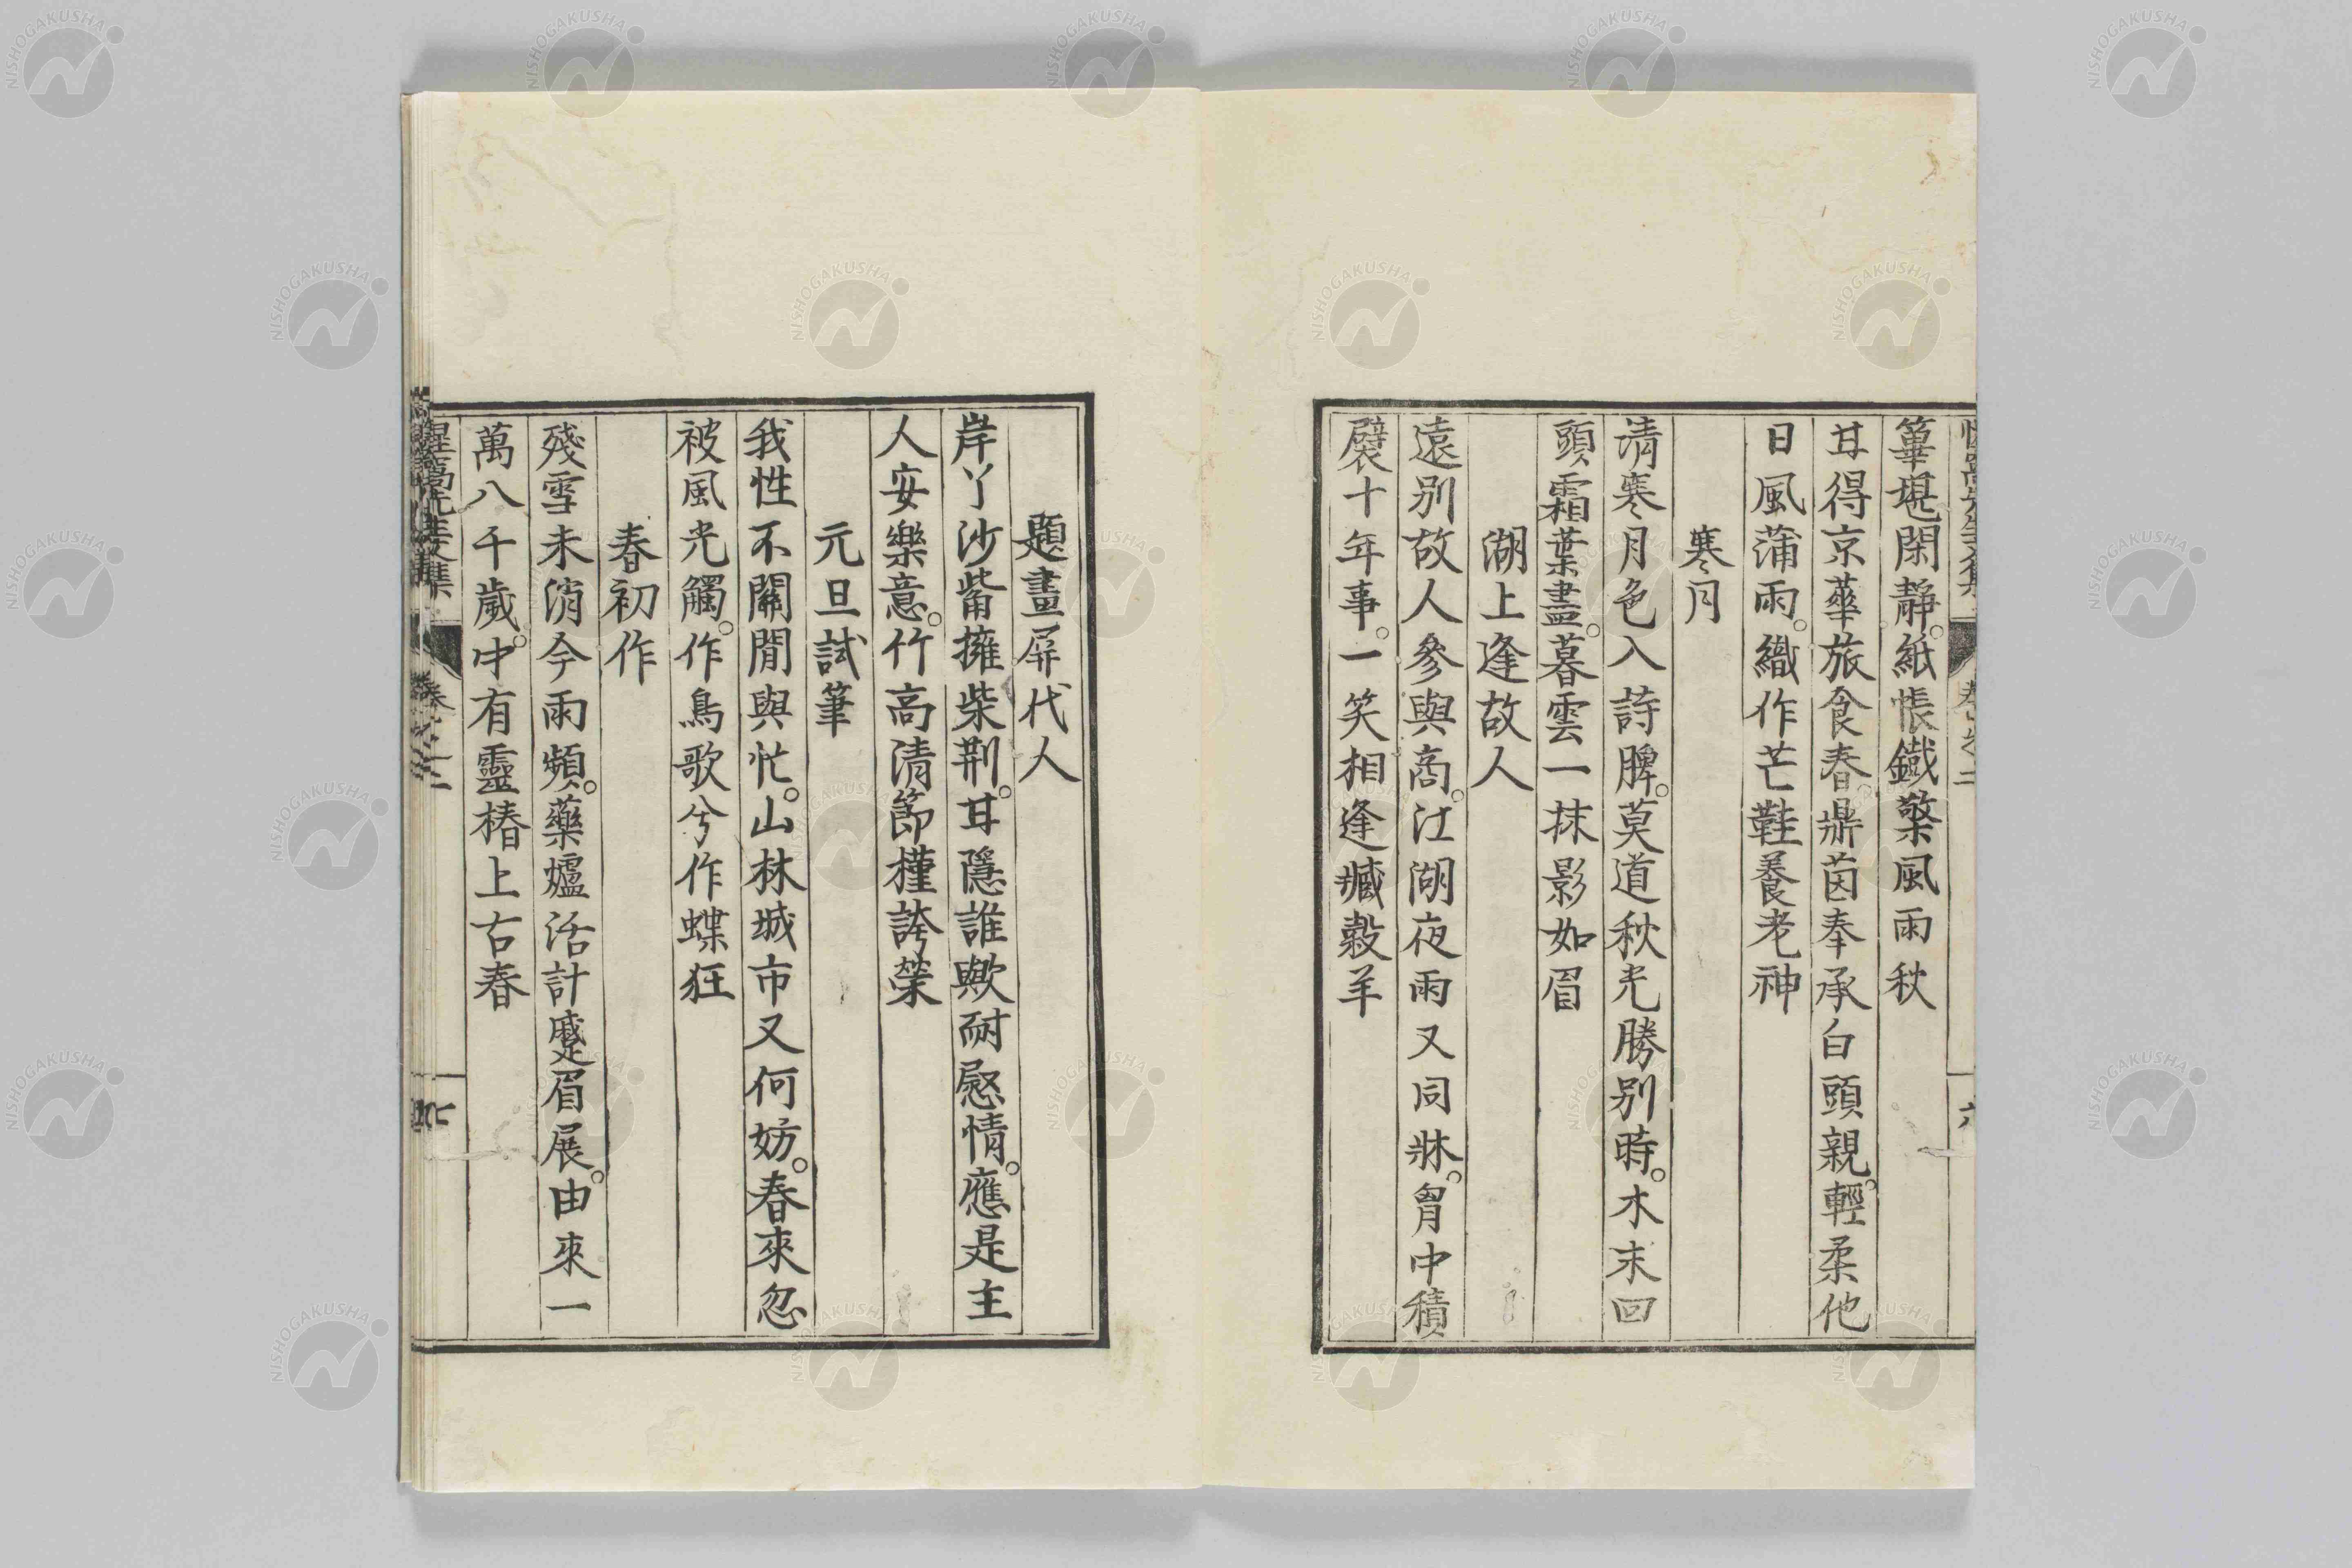 篳兠閑靜。紙帳鐵檠風雨秋
甘得京華旅食春鼎茵奉承白頭親。輕柔他
日風蒲雨。織作芒鞋養老神
寒月
清寒月色入詩脾。莫道秋光勝別時。木末回
頭霜葉盡。暮雲一抹影如眉
湖上逢故人
遠別故人參與商。江湖夜雨又同牀。胷中積
襞十年事。一笑相逢臧穀羊
題畫屏代人
岸丫沙觜擁柴荆。甘隱誰歟耐慰情。應是主
人安樂意。竹高清節槿誇榮
元旦試筆
我性不關閒與忙。山林城市又何妨。春來忽
被風光觸。作鳥歌兮作蝶狂
春初作
殘雪未消今雨頻。藥爐活計蹙眉展。由來一
萬八千歲。中有靈椿上古春
NISHOGAKUSHA